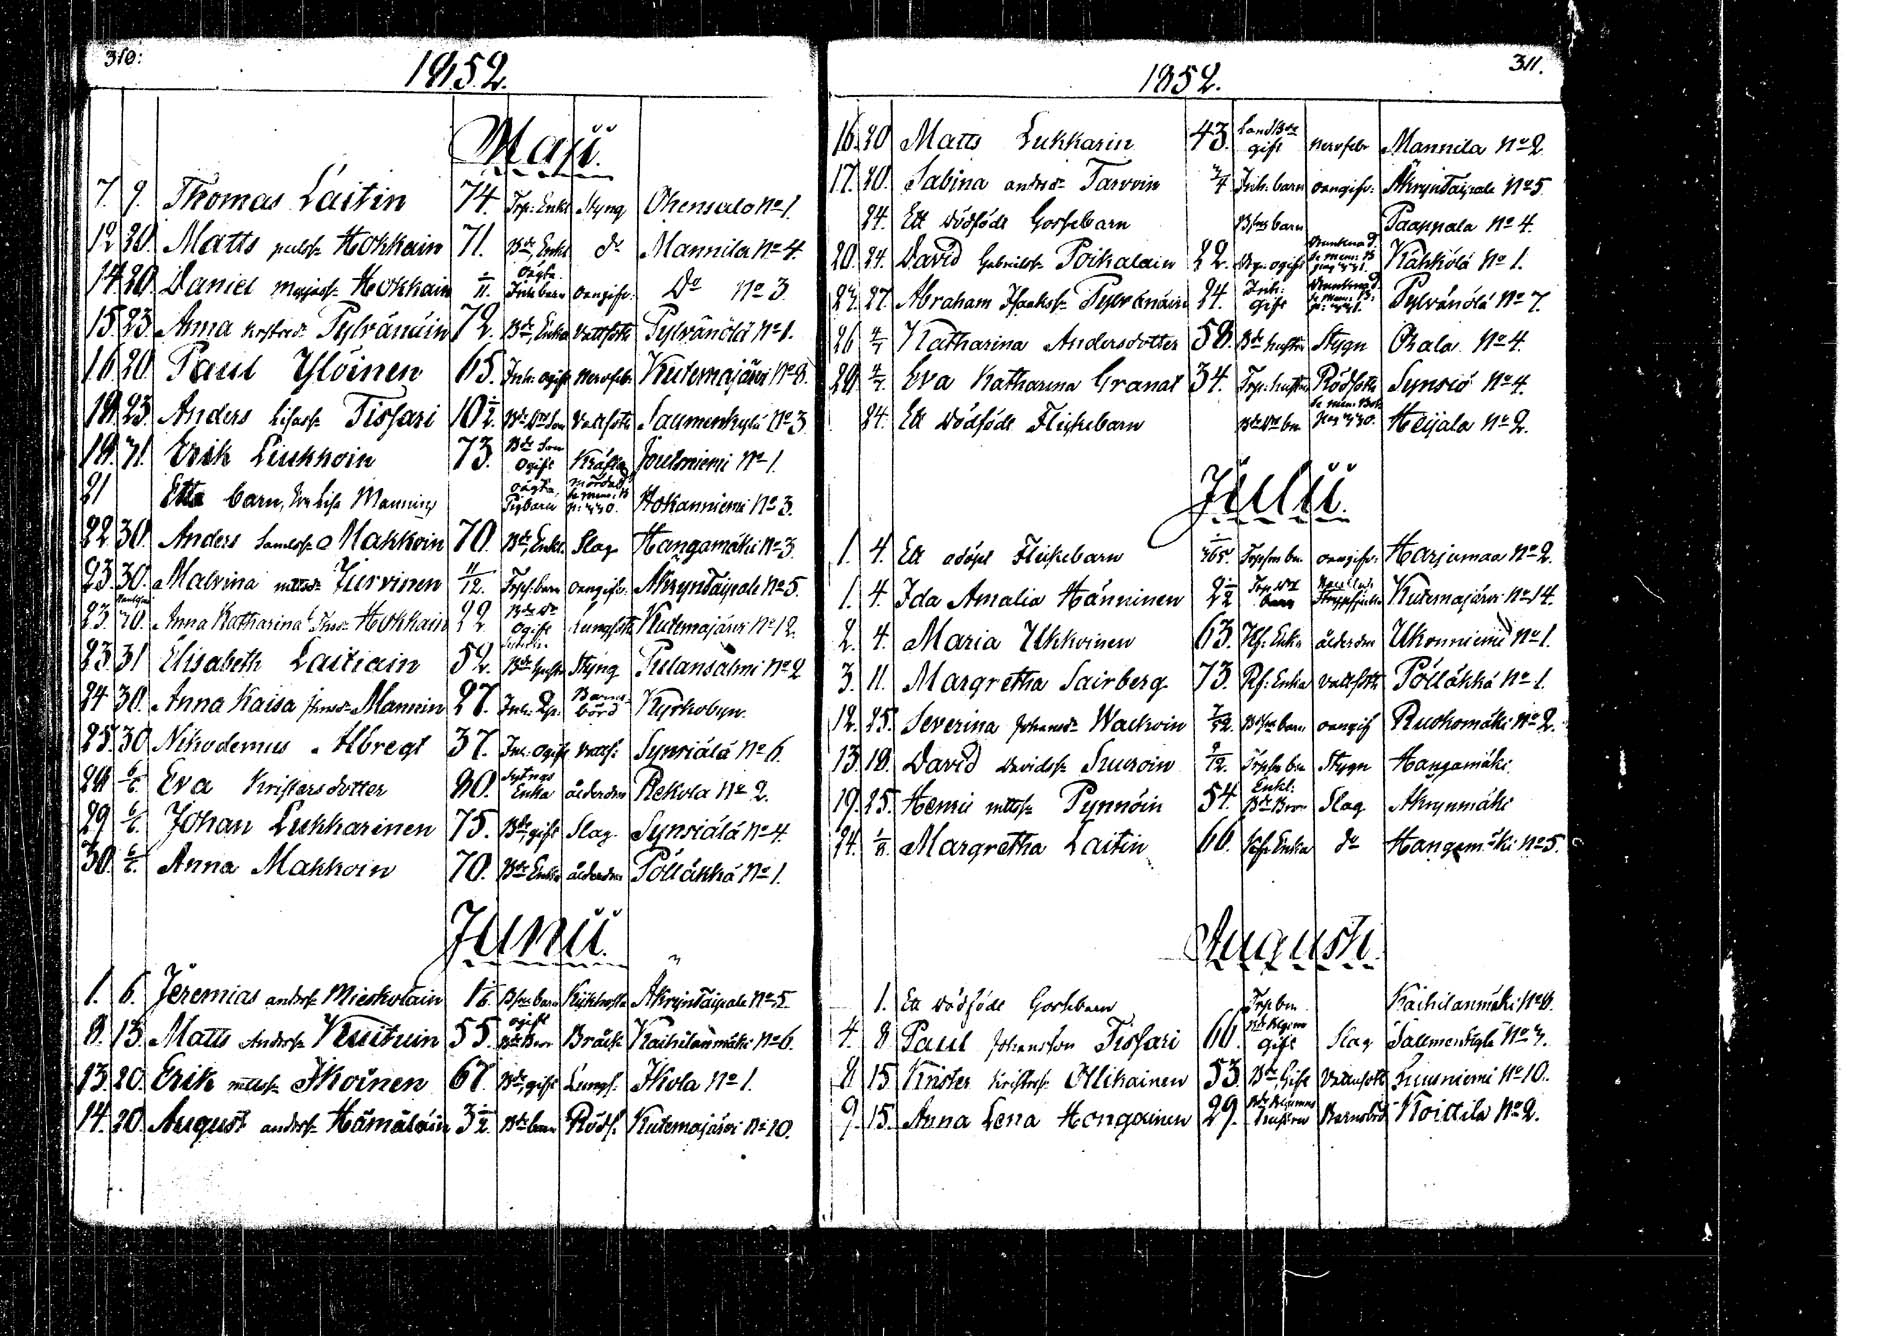 310:
1852.
Maji.
7. 9. Thomas Laitin 74. Trp: Enkl Styng Ohensalo No 1.
12 20. Matts paulss. Hokkain 71. Bde, Enkl do Mannila No 4.
14. 20. Daniel Hokkain oägta Inh barn oangifv: Do No 3.
15. 23. Anna Pylvänäin 72. Bde, Enka Vattsoth Pylvänälä No 1.
16 20. Paul Ylöinen 65. Inh: ogift nervfeb: Kutemajärvi No 8.
18. 23. Anders Tissari 10½. Vattsoth Saumenkylä No 3
19. 31. Erik Liukkoin 73. Bde Son Ogift Kräfta Joutsniemi No 1.
21 barn, Eva Lisa Mannin oägta, Pigbarn mördad Hokanniemi No 3.
22. 30. Anders Makkoin 70. Bde, Enkl. Slag Hangamäki No 3.
23. 30. Malvina mattsdr Jurvinen 11/12. Trpf. barn oangifv: Akryntaipale No 5.
23. 30. Anna Katharina Hokkain 22 Ogift Lungsoth Kutemajärvi No 12.
23. 31 Elisabeth Laitiain 52. Bde hustru Styng Pulansalmi No 2
24 30. Anna Kaisa Mannin 27. Inh: Barnsbörd Kyrkobyn.
25. 30 Nikodemus Albregt 37. Inh: ogift vatts: Synsiälä No 6.
28 6/6. Eva Kristersdotter 80. Enka ålderdom Rekola No 2.
29 6/6. Johan Lukkarinen 75. Bde, gift Slag. Synsiälä No 4.
30. 6/6. Anna Makkoin 70. Bde Enka ålderdom Pölläkkä No 1.
Junii.
1. 6. Jeremias anderss. Mieskolain barn Kikhosta Akryntaipale No 5.
8. 13. Matts Anderss. Kuitruin 55. ogift Bde Bror Bråck Kaihilanmäki No 6.
13. 20. Erik mattss. Ikoinen 67. Bde, gift Lungs. Ikola No 1.
14. 20. August anderss. Hämäläin 3½. Bde barn Röds. Kutemajärvi No 10.
311.
1852.
16. 20 Matts Lukkarin 43. Landbde gift nervfebr Mannila No 2
17. 20. Sabina andersdr Tarvoin Inh: barn oangifv: Akryntaipale No 5.
24. Ett dödfödt Gossebarn barn Paappala No 4.
20. 24. David Gabrielss. Poikalain 22. ogift Drunknad. Kähkölä No 1.
23. 27. Abraham Isaakss. Pylvänäin 24. Inh: Gift Drunknad. Pylvänälä No 7.
26 4/7 Katharina Andersdotter 58. Bde hustru Stygn Ohala No 4.
29 4/7. Eva Katharina Granat 34. Trp. hustru Rödsoth Synsiö No 4.
24. Ett dödfödt Flickebarn Heijala No 2.
Julii.
1. 4. Ett odöpt Flickebarn 1/365 oangifv: Harjumaa No 2.
1. 4. Ida Amalia Hänninen 2½ barn Kutemajärvi No 14.
2. 4. Maria Ukkoinen 63. Enka ålderdom Ukonniemi No 1.
3. 11. Margretha Sairberg. 73. Enka vattsoth Pölläkkä No 1.
12. 25. Severina Johansdr Walkoin barn oangif Ruokomäki No 2.
13. 18. David Davidss. Suuroin 9/12. Stygn Hangamäki
19. 25. Henric mattss. Pynnöin 54. Enkl: Bde Bror Slag Akrynmäki
24. 1/8. Margretha Laitin 66. Enka do Hangamäki No 5.
Augusti.
1. Ett dödfödt Gossebarn Trp bn. Kaihilanmäki No 6.
4. 8 Paul Johansson Tissari 60. gift Slag No 7.
8 15 Krister Kristerss. Ollikainen 53. Bde, Gift Vattusoth Suurniemi No 10.
9. 15. Anna Lena Hongoinen 29. hustru Barnsbörd Koittila No 2.